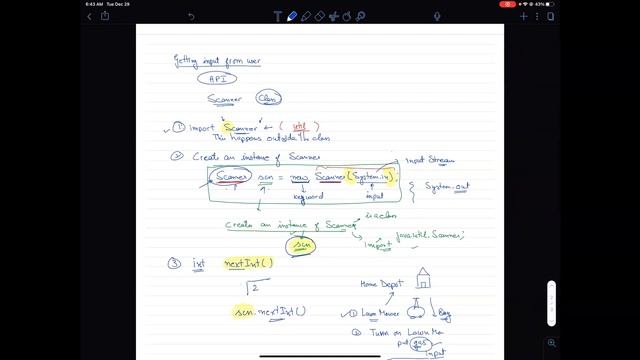 6:43 AM Tue Dec 29
43%
Getting input from user
API
Scanner Class
① import Scanner ← ( util )
This happens outside the class
② Create an instance of Scanner
Scanner scn = new Scanner (System.in);
Input Stream
System.out
keyword
input
Creates an instance of Scanner
is a class
import java.util.Scanner;
scn
③ int nextInt()
√2
scn.nextInt()
Home Depot
① Lawn Mower
Buy
② Turn on Lawn Mo
put gas
input